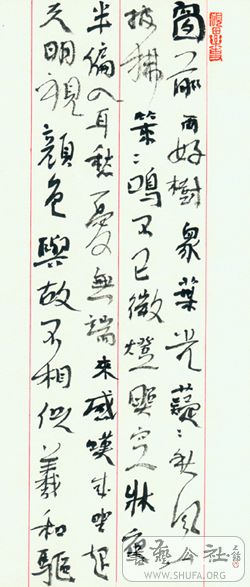 窗前兩好樹眾葉光薿〻秋風
披拂策〻鳴不已微燈照空床夜
半偏入耳愁憂無端來感嘆成坐起
天明視顏色與故不相似羲和驅
書藝公社
WWW.SHUFA.ORG